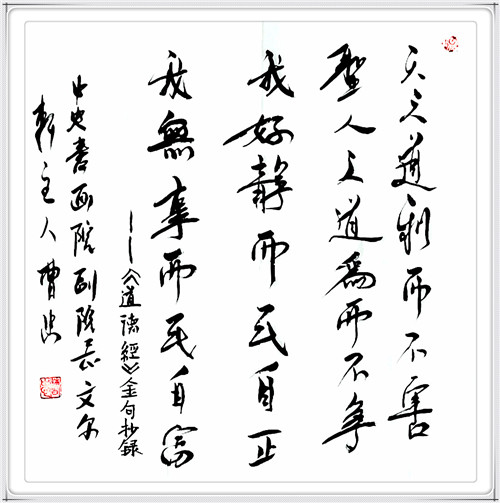 天之道利而不害
聖人之道為而不争
我好靜而民自正
我無事而民自富
——《道德經》金句抄録
中央書画院副院长文尔
軒主人曹